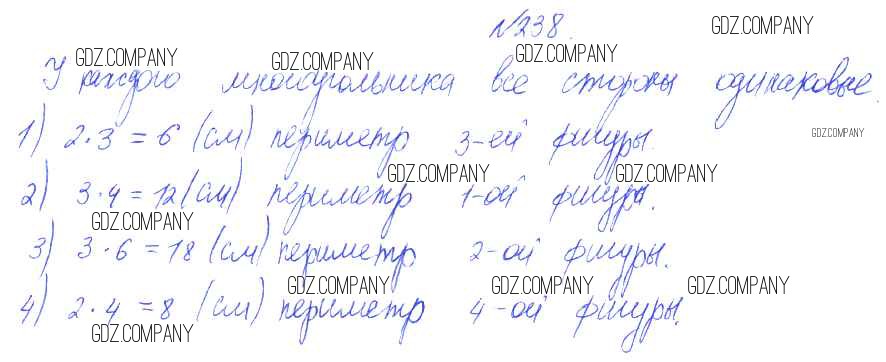 №238.
GDZ.COMPANY
GDZ.COMPANY GDZ.COMPANY GDZ.COMPANY
У каждого многоугольника все стороны одинаковые.
1) 2·3=6 (см) периметр 3-ей фигуры.
GDZ.COMPANY
GDZ.COMPANY GDZ.COMPANY
2) 3·4=12 (см) периметр 1-ой фигуры.
GDZ.COMPANY
3) 3·6=18 (см) периметр 2-ой фигуры.
GDZ.COMPANY GDZ.COMPANY GDZ.COMPANY
4) 2·4=8 (см) периметр 4-ой фигуры.
GDZ.COMPANY